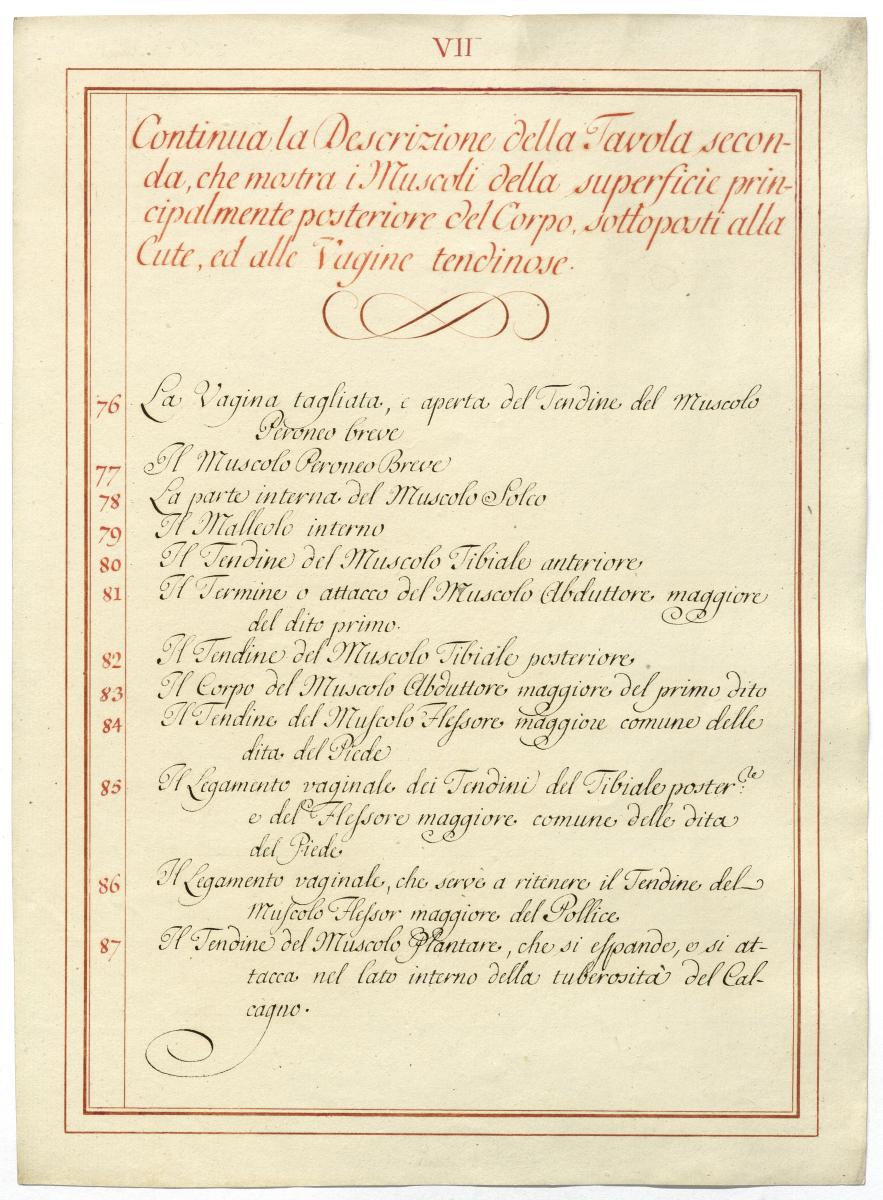 VII
Continua la Descrizione della Tavola secon-
da, che mostra i Muscoli della superficie prin-
cipalmente posteriore del Corpo, sottoposti alla
Cute, ed alle Vagine tendinose.
76 La Vagina tagliata, e aperta del Tendine del Muscolo
Peroneo breve
77 Il Muscolo Peroneo Breve
78 La parte interna del Muscolo Soleo
79 Il Malleolo interno
80 Il Tendine del Muscolo Tibiale anteriore
81 Il Termine o attacco del Muscolo Abduttore maggiore
del dito primo.
82 Il Tendine del Muscolo Tibiale posteriore
83 Il Corpo del Muscolo Abduttore maggiore del primo dito
84 Il Tendine del Muſcolo Fleſsore maggiore comune delle
dita del Piede
85 Il Legamento vaginale dei Tendini del Tibiale poster.le
e del Fleſsore maggiore comune delle dita
del Piede
86 Il Legamento vaginale, che serve a ritenere il Tendine del
Muſcolo Fleſsor maggiore del Pollice
87 Il Tendine del Muscolo Plantare, che si eſpande, e si at-
tacca nel lato interno della tuberosità del Cal-
cagno.